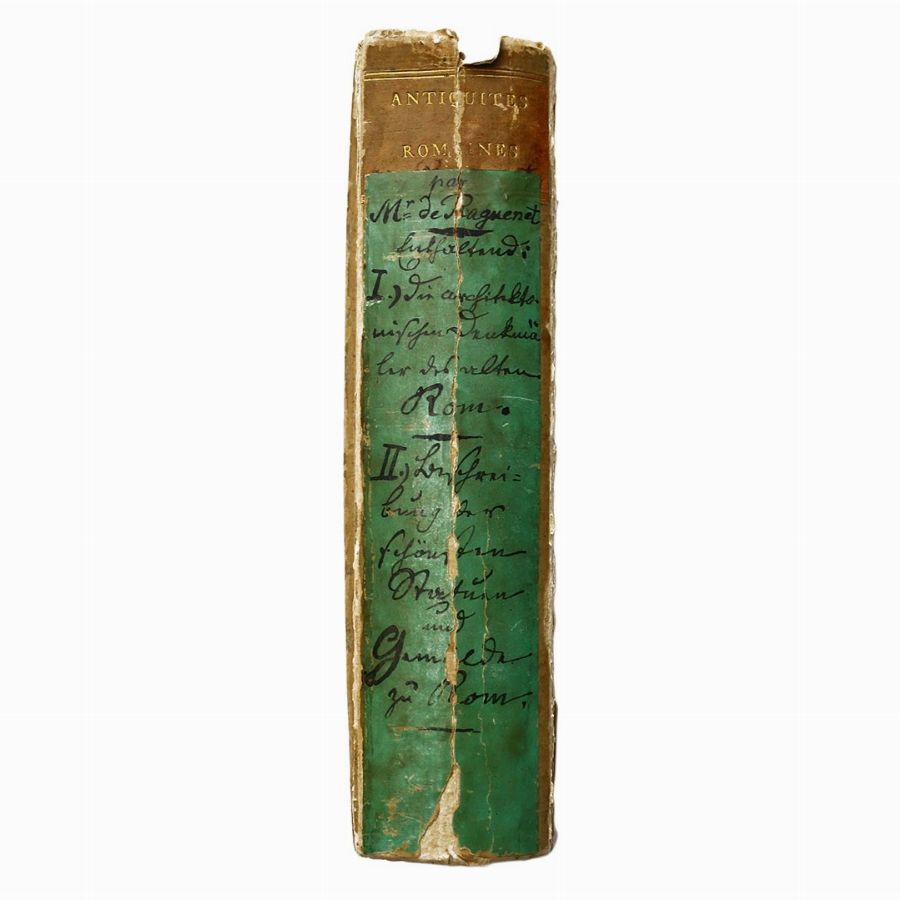 ANTIQUITES
ROMAINES
par
Mr. de Raguenet
Enthaltend:
I.) die architekto-
nischen Denkmä
ler des alten
Rom.
II.) Beschrei=
bung der
schönsten
Statuen
und
Gemälde
zu Rom.